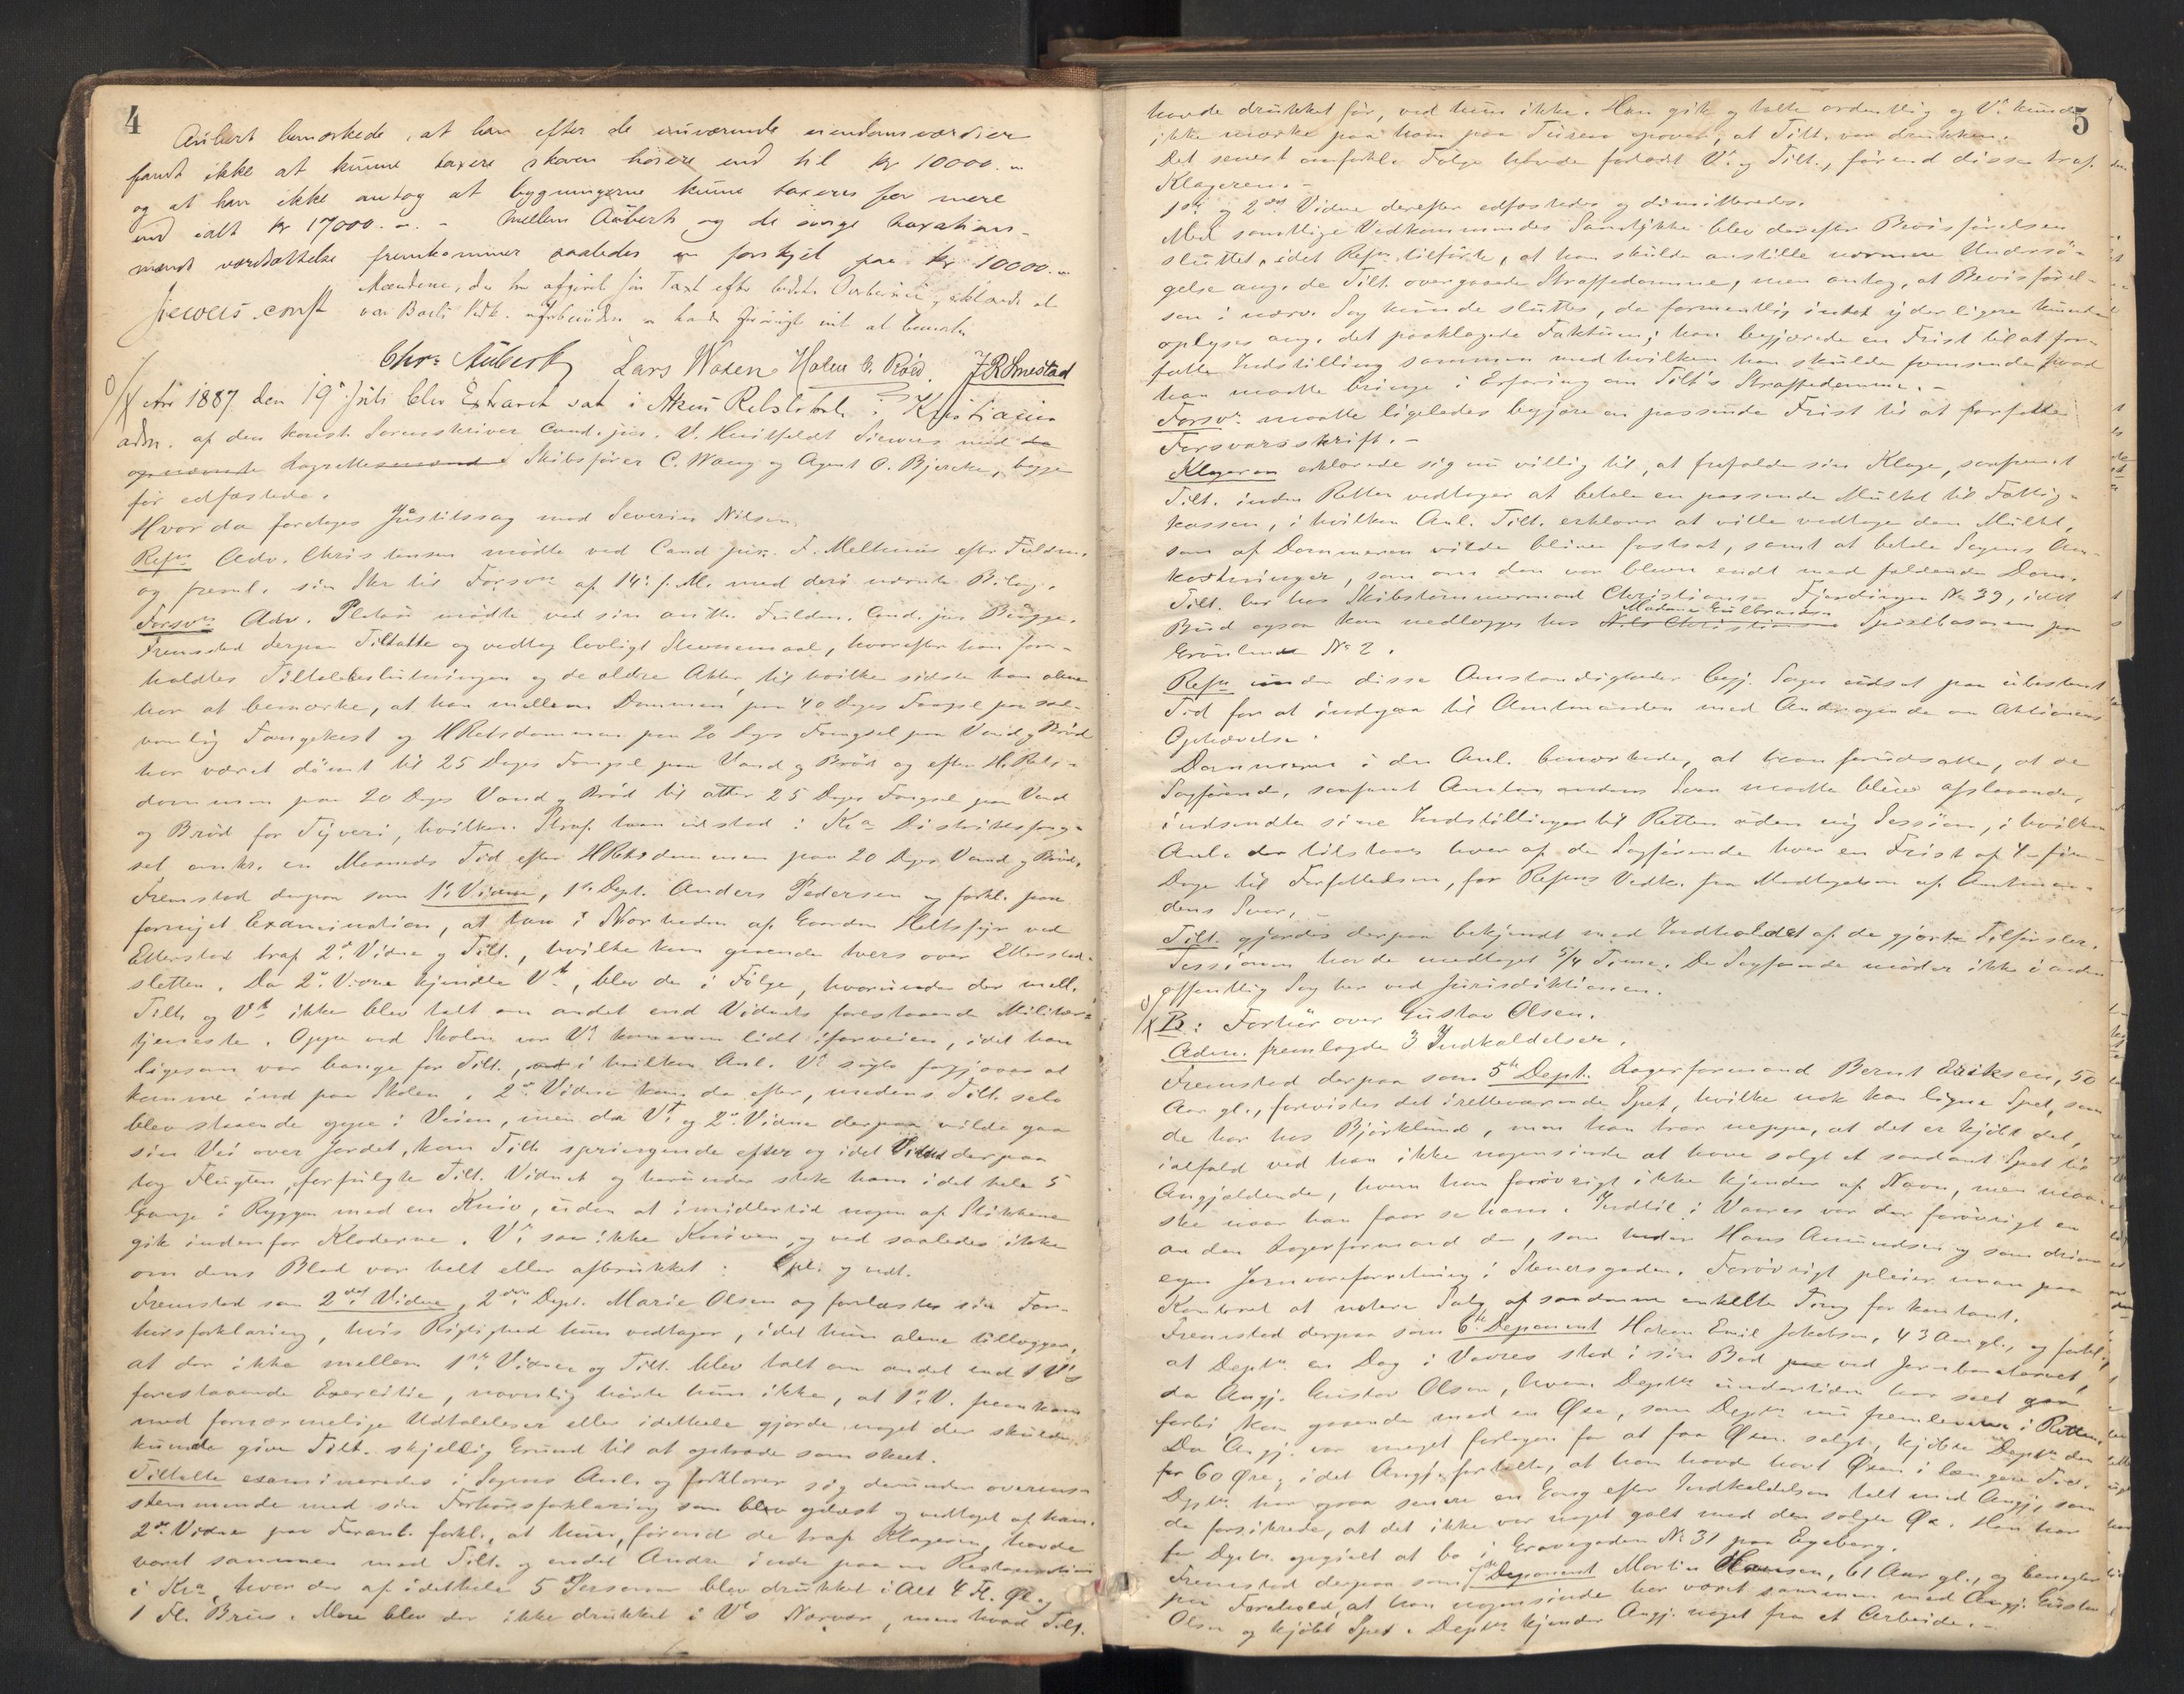 4
Aubert bemærkede, at han efter de nuværende eiendomsværdier
fandt ikke at kunne taxere skoven høiere end til kr 10000.
og at han ikke antog at bygningerne kunne taxeres for mere
end ialt kr 17000. - Mellem Auberts og de øvrige taxations-
mænds værdsættelse fremkommer saaledes en forskjel paa kr 10000.
Mændene, der har afgivet sin Taxt efter bedste Overbevisning, erklærede at
Siewers const. var Boets Vedk. havde forøvrigt intet at bemærke
Chr. Aubert Lars Woxen Halvor O. Røed J R Smestad
Aar 1887 den 19de Juli blev Extraret sat i Akers Retslokale i Kristiania
adm. af den konst. Sorenskriver Cand. jur. V. Huitfeldt Siewers med de
opnævnte Lagrettesmænd Skibsfører C. Wang og Agent O. Bjercke, begge
før edfæstede.
Hvor da foretoges Justitssag mod Severin Nilsen.
Refns Adv. Christensen mødte ved Cand jur. F. Meltzer efter Fuldm.
og freml. sin Skr til Forsvr af 14. f.M. med deri nævnte Bilag.
Forsvr Adv. Platou mødte ved sin auth. Fuldm. Cand. jur. Bugge.
Fremstod derpaa Tiltalte og vedtog lovligt Stevnemaal, hvorefter han fore-
holdtes Tiltalebeslutningen og de ældre Akter, til hvilke sidste han alene
har at bemærke, at han mellem Dommen paa 40 Dages Fængsel paa sæd-
vanlig Fangekost og HRetsdommen paa 20 Dages Fængsel paa Vand og Brød
har været dømt til 25 Dages Fængsel paa Vand og Brød og efter H. Rets-
dommen paa 20 Dages Vand og Brød til atter 25 Dages Fængsel paa Vand
og Brød for Tyveri, hvilken Straf han udstod i Kra Distriktsfæng-
sel omkr. en Maaneds Tid efter HRetsdommen paa 20 Dages Vand og Brød.
Fremstod derpaa som 1ste Vidne, 1ste Dept. Anders Pedersen og forkl. paa
fornyet Examination, at han i Nærheden af Gaarden Heltsfyr ved
Etterstad traf 2det Vidne og Tilt., hvilke kom gaaende tvers over Etterstad-
sletten. Da 2det Vidne kjendte Vt, blev de i Følge, hvorunder der mell.
Tilt. og Vt ikke blev talt om andet end Vidnets forestaaende Militær-
tjeneste. Oppe ved Skolen var Vt kommen lidt iforveien, idet han
ligesom var bange for Tilt., i hvilken Anl. Vt søgte forgjæves at
komme ind paa Skolen. 2det Vidne kom da efter, medens Tilt. selv
blev staaende oppe i Veien, men da Vt og 2det Vidne derpaa vilde gaa
sin Vei over Jordet, kom Tilt. springende efter og idet Vidnet derpaa
tog Flugten, forfulgte Tilt. Vidnet og herunder stak ham i det hele 5
Gange i Ryggen med en Kniv, uden at imidlertid nogen af Stikkene
gik indenfor Klæderne. Vt saa ikke Kniven, og ved saaledes ikke
om dens Blad var helt eller afbrukket. Opl. og vedt.
Fremstod som 2det Vidne, 2den Dept. Marie Olsen og forlæstes sin For-
hørsforklaring, hvis Rigtighed hun vedtager, idet hun alene tillægger,
at der ikke mellem 1ste Vidne og Tilt. blev talt om andet end 1 Vs
forestaaende Exercitie, navnlig hørte hun ikke, at 1ste V. fremkom
med fornærmelige Udtalelser eller idethele gjorde noget der skulde
kunde give Tilt. skjellig Grund til at optræde som skeet.
Tiltalte examineredes i Sagens Anl. og forklarer sig derunder overens-
stemmende med sin Forhørsforklaring som blev oplæst og vedtaget af ham.
2det Vidne paa Foranl. forkl., at hun, førend de traf Klageren, havde
været sammen med Tilt. og endel Andre inde paa en Restauration
i Kra, hvor der af idethele 5 Personer blev drukket i Alt 4 Fl. Øl og
1 Fl. Brus. Mere blev der ikke drukket i Vs Nærvær, men hvad Tilt.
5
havde drukket før, ved hun ikke. Han gik og talte ordentlig og Vt kunde
ikke mærke paa ham paa Turen opover, at Tilt. var drukken.
Det senest omforkl. Følge havde forladt Vt og Tilt., førend disse traf
Klageren. -
1ste og 2det Vidne derefter edfæstedes og dimitteredes.
Med samtlige Vedkommendes Samtykke blev derefter Bevisførelsen
sluttet, idet Refns tilførte, at han skulde anstille nærmere Undersø-
gelse ang. de Tilt. overgaaede Straffedomme, men antog, at Bevisførel-
sen i nærv. Sag kunde sluttes, da formentlig intet yderligere kunde
oplyses ang. det paaklagede Faktum; han begjærede en Frist til at for-
fatte Indstilling sammen med hvilken han skulde fremsende hvad
han maatte bringe i Erfaring om Tilt's Straffedomme. -
Forsvr maatte ligeledes begjære en passende Frist til at forfatte
Forsvarsskrift. -
Klageren erklærede sig nu villig til, at frafalde sin Klage, saafremt
Tilt. inden Retten vedtager at betale en passende Mulkt til Fattig-
kassen, i hvilken Anl. Tilt. erklærer at ville vedtage den Mulkt,
som af Dommeren vilde blive fastsat, samt at betale Sagens Om-
kostninger, som om den var bleven endt med fældende Dom.
Tilt. bor hos Skibstømmermand Christiansen Fjerdingen No 39, idet
Madame Gulbransen
Bud ogsaa kan nedlægges hos Nils Christiansen Spisebasaren paa
Grønland No 2.
Refns under disse Omstændigheder begj. Sagen udsat paa ubestemt
Tid for at indgaa til Amtmanden med Andragende om Aktionens
Ophævelse.
Dommeren i den Anl. bemærkede, at han forudsatte, at de
Sagførende, saafremt Amtmandens Svar maatte blive afslaaende,
indsendte sine Indstillinger til Retten uden ny Session, i hvilken
Anl. der tilstaaes hver af de Sagførende hver en Frist af 4 - fire -
Dage til Forfattelsen, for Refns Vedk. fra Modtagelsen af Amtman-
dens Svar. -
Tilt. gjordes derpaa bekjendt med Indholdet af de gjorte Tilførsler.
Sessionen havde medtaget 5/4 Time. De Sagførende møder ikke i anden
offentlig Sag her ved Jurisdiktionen.
B: Forhør over Gustav Olsen.
Adm. fremlagde 3 Indkaldelser.
Fremstod derpaa som 5te Dept. Lagerformand Bernt Eriksen, 50
Aar gl., forevistes det iretteværende Spet, hvilke nok kan ligne Spet, som
de har hos Bjørklund, men han tror neppe, at det er kjøbt der,
ialfald ved han ikke nogensinde at have solgt et saadant Spet til
Angjældende, hvem han forøvrigt ikke kjender af Navn, men maa-
ske naar han faar se ham. Indtil i Vaares var der forøvrigt en
anden Lagerformand der, som heder Hans Amundsen og som driver
egen Jernvareforretning i Skuersgaden. Forøvrigt pleier man paa
Kontoret at notere Salg af saadanne enkelte Ting for kontant.
Fremstod derpaa som 6te Deponent Hakon Emil Jakobsen, 43 Aar gl., og forkl.
at Deptn en Dag i Vaares stod i sin Bod ved Jernbanetorvet,
da Angj. Gustav Olsen, hvem Deptn undertiden har seet gaa
forbi, kom gaaende med en Øxe, som Deptn nu fremleverer i Retten.
Da Angj. var meget forlegen for at faa Øxen solgt, kjøbte Deptn den
for 60 Øre, idet Angj. fortalte, at han havde havt Øxen i længere Tid.
Deptn har ogsaa senere en Gang efter Indkaldelsen talt med Angj., som
da forsikrede, at det ikke var noget galt med den solgte Øx. Han har
for Deptn opgivet at bo i Gravegaden No 31 paa Egeberg.
Fremstod derpaa som 7de Deponent Martin Hansen, 61 Aar gl., og benegter
paa Forehold, at han nogensinde har været sammen med Angj. Gustav
Olsen og kjøbt Spet. Deptn kjender Angj. noget fra et Arbeide. -